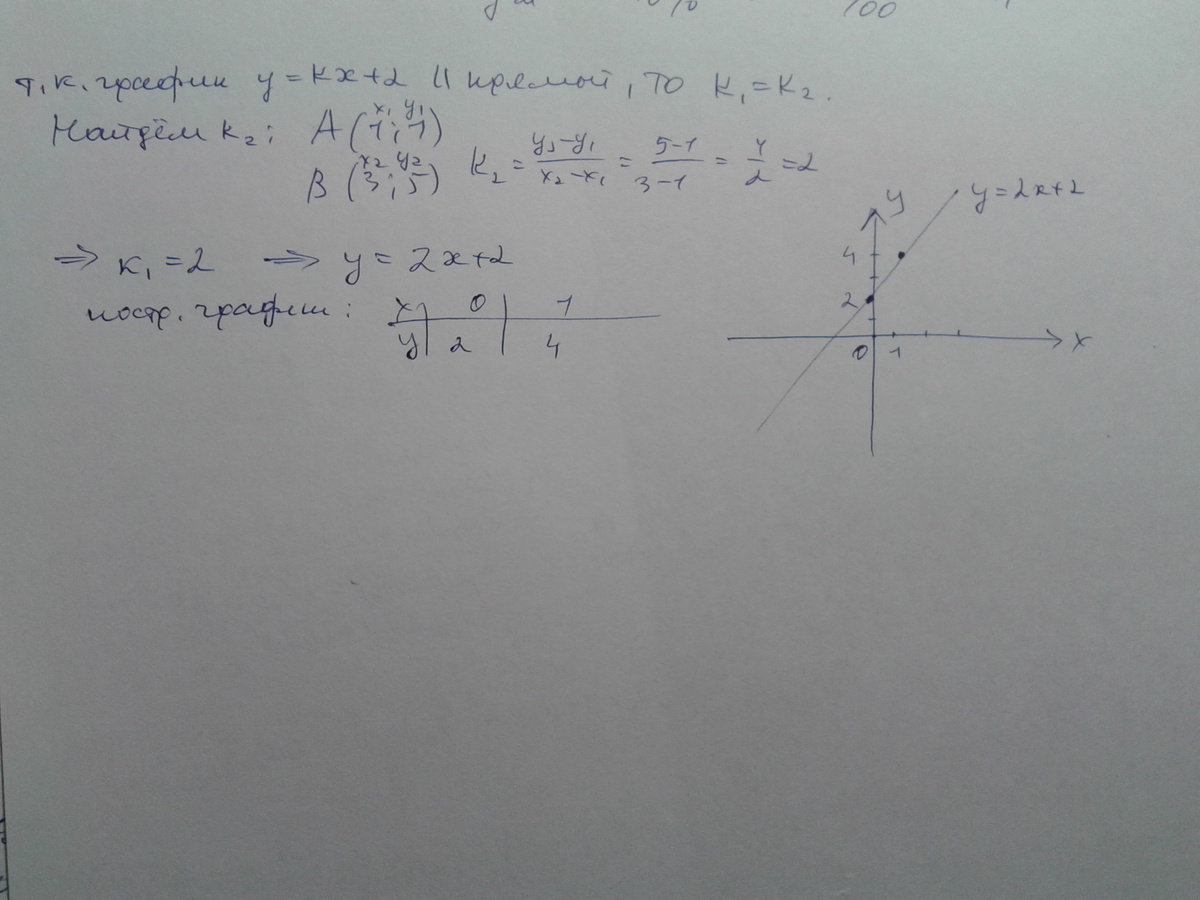 100
т.к. график y = kx+2 || прямой, то k₁ = k₂.
Найдём k₂: A (1; 1) x₁ y₁
B (3; 5) x₂ y₂ k₂ = (y₂-y₁)/(x₂-x₁) = (5-1)/(3-1) = 4/2 = 2
⇒ k₁ = 2 ⇒ y = 2x+2
постр. график: x 0 1
y 2 4
y
y = 2x+2
4
2
0 1 x